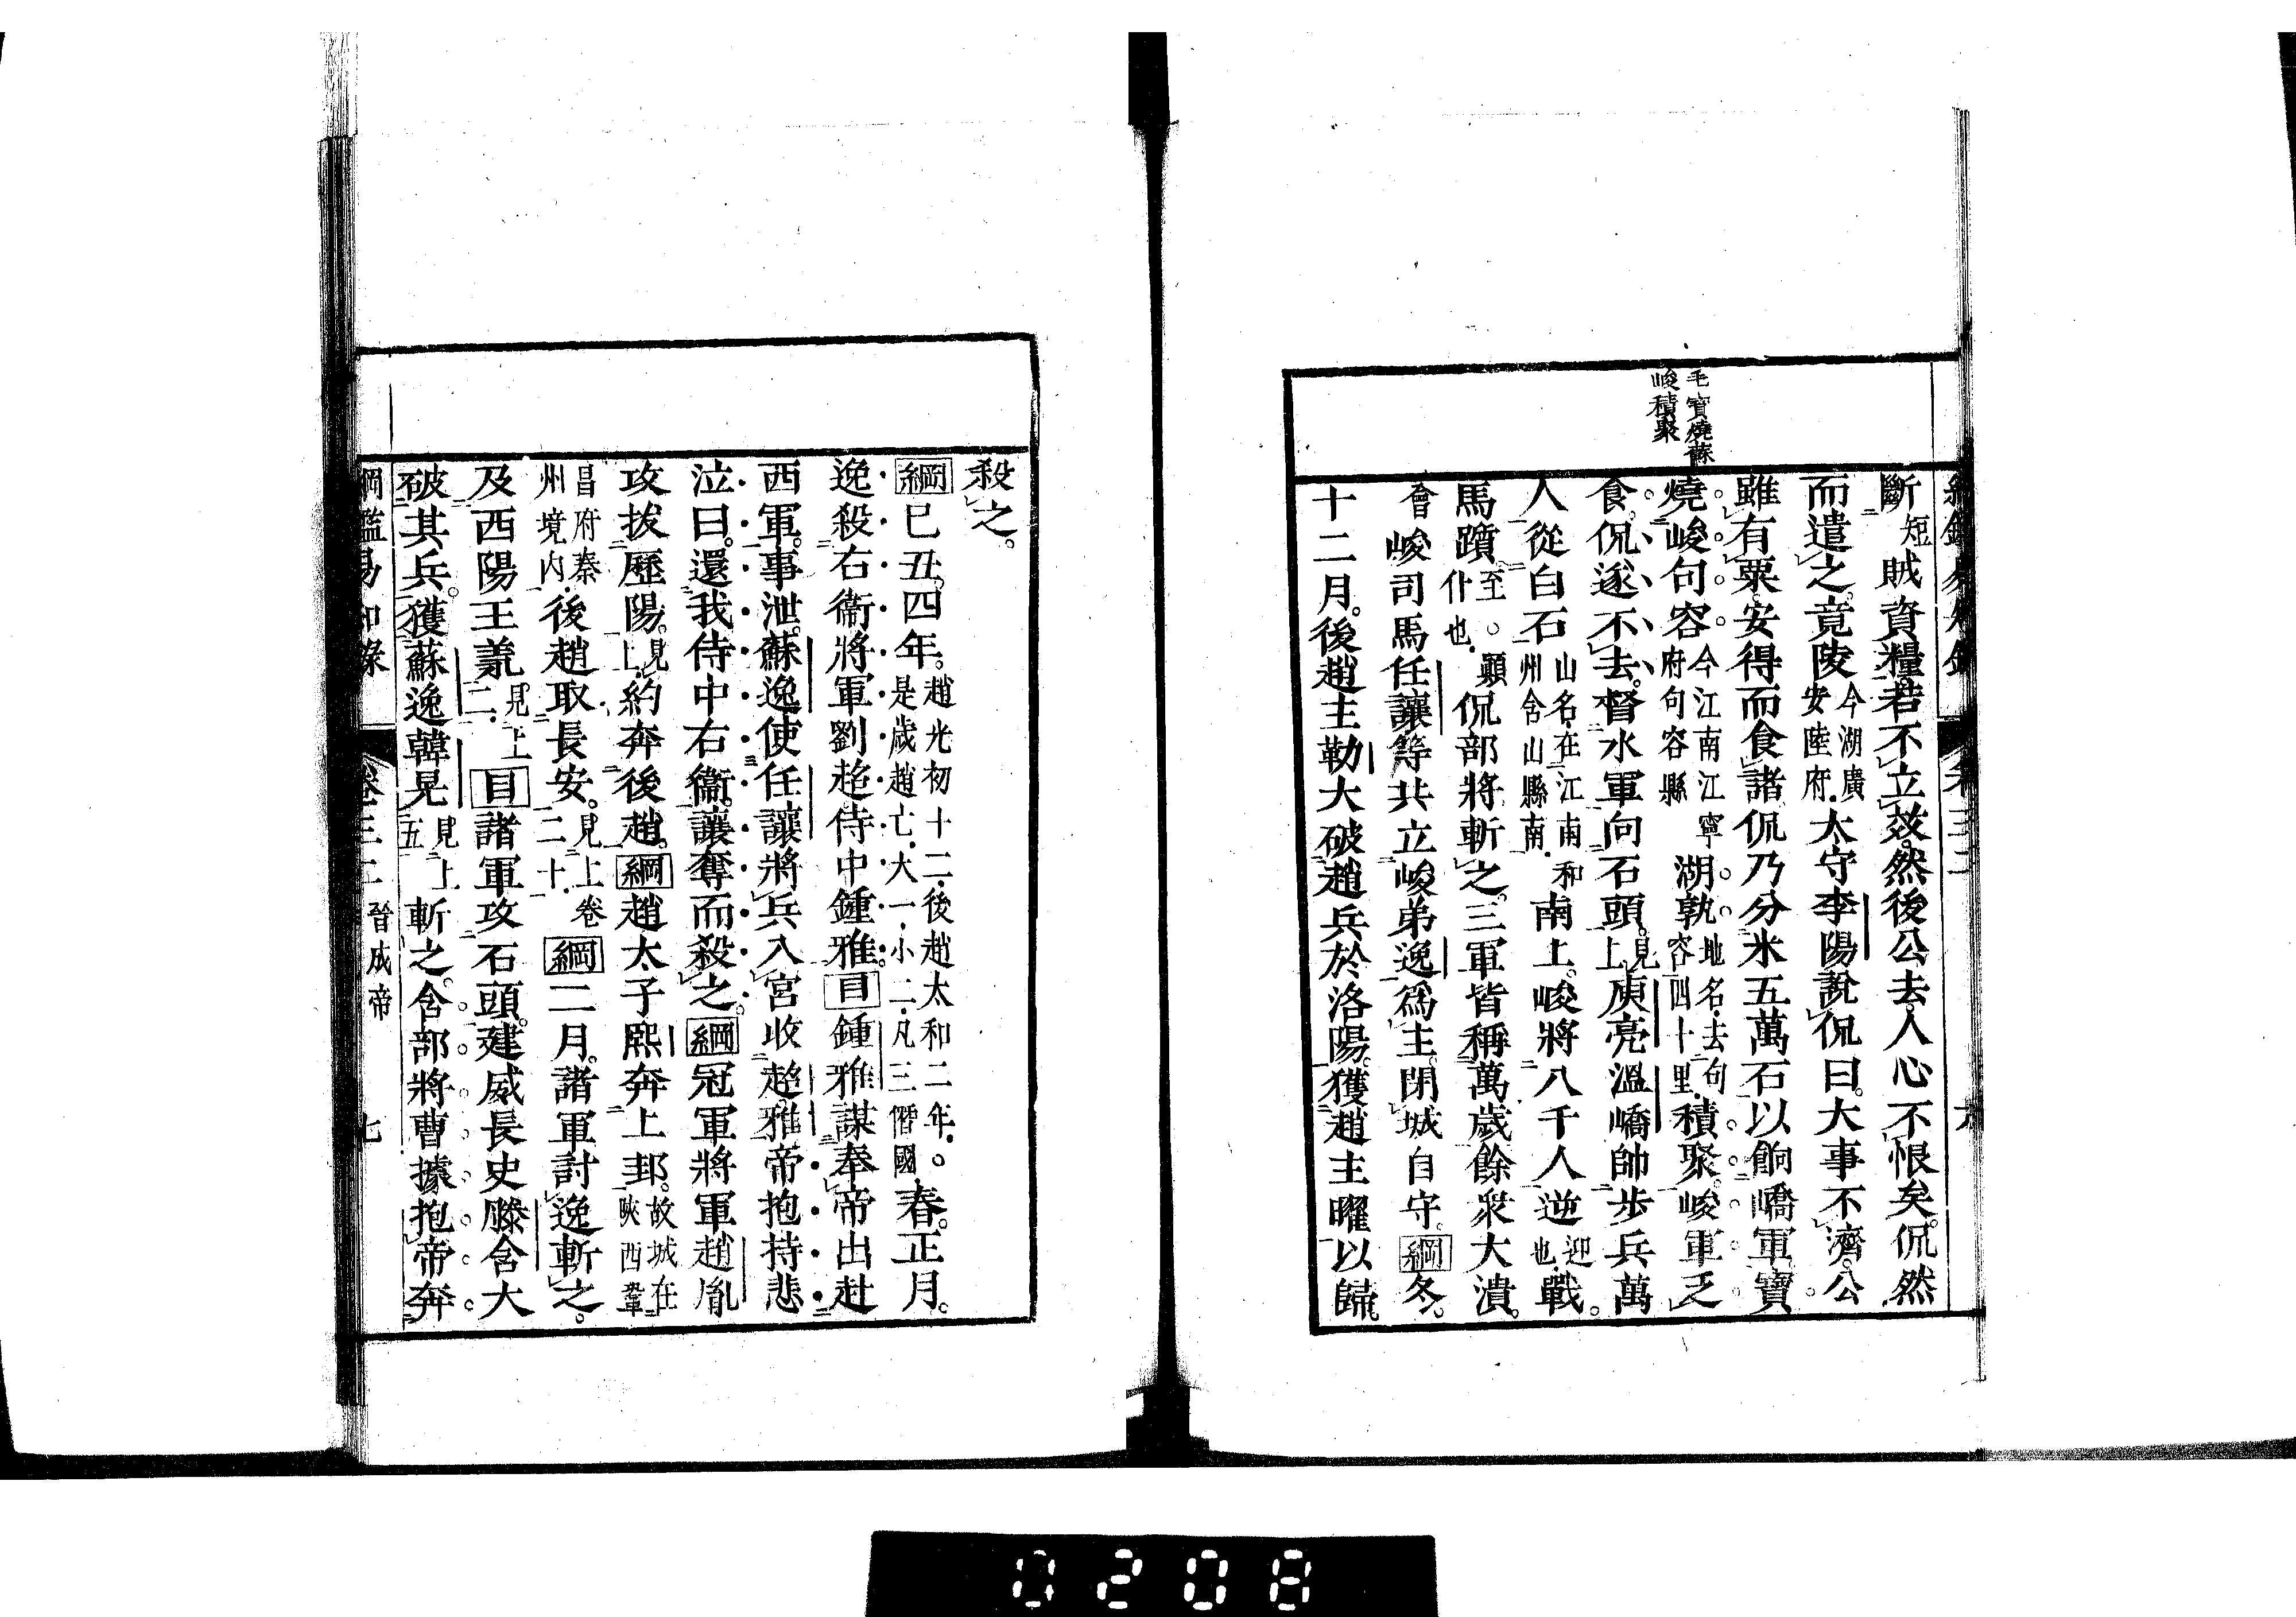 毛寶燒蘇
峻積聚
斷短賊資糧若不立效然後公去人心不恨矣。侃然
而遣之。竟陵今湖廣安陸府太守李陽說侃曰。大事不濟。公
雖有粟。安得而食諸侃乃分米五萬石以餉嶠軍。寶
燒峻句容今江南江寧府句容縣湖孰地名去句容四十里積聚。峻軍乏
食。侃遂不去。督水軍向石頭。見上庾亮溫嶠帥步兵萬
人從白石山名在江南和州含山縣南南上。峻將八千人逆迎也戰。
馬躓至。顚什也侃部將斬之。三軍皆稱萬歲餘衆大潰。
會峻司馬任讓等共立峻弟逸爲主。閉城自守。綱冬。
十二月。後趙主勒大破趙兵於洛陽。獲趙主曜以歸。
殺之。
綱己丑。四年。趙光初十二後趙太和二年。是歲趙亡大一小二凡三僭國春。正月。
逸殺右衞將軍劉超侍中鍾雅。目鍾雅謀奉帝出赴
西軍。事泄。蘇逸使任讓將兵入宮收超雅帝抱持悲
泣曰。還我侍中右衞。讓奪而殺之。綱冠軍將軍趙胤
攻拔歷陽。見上約奔後趙。綱趙太子熙奔上邽。故城在陝西鞏
昌府秦州境內後趙取長安。見上卷二十一綱二月。諸軍討逸斬之。
及西陽王羕。見上二目諸軍攻石頭。建威長史滕含大
破其兵。獲蘇逸韓晃見上五斬之。含部將曹據抱帝奔
綱鑑易知錄 卷三二 晉成帝 七